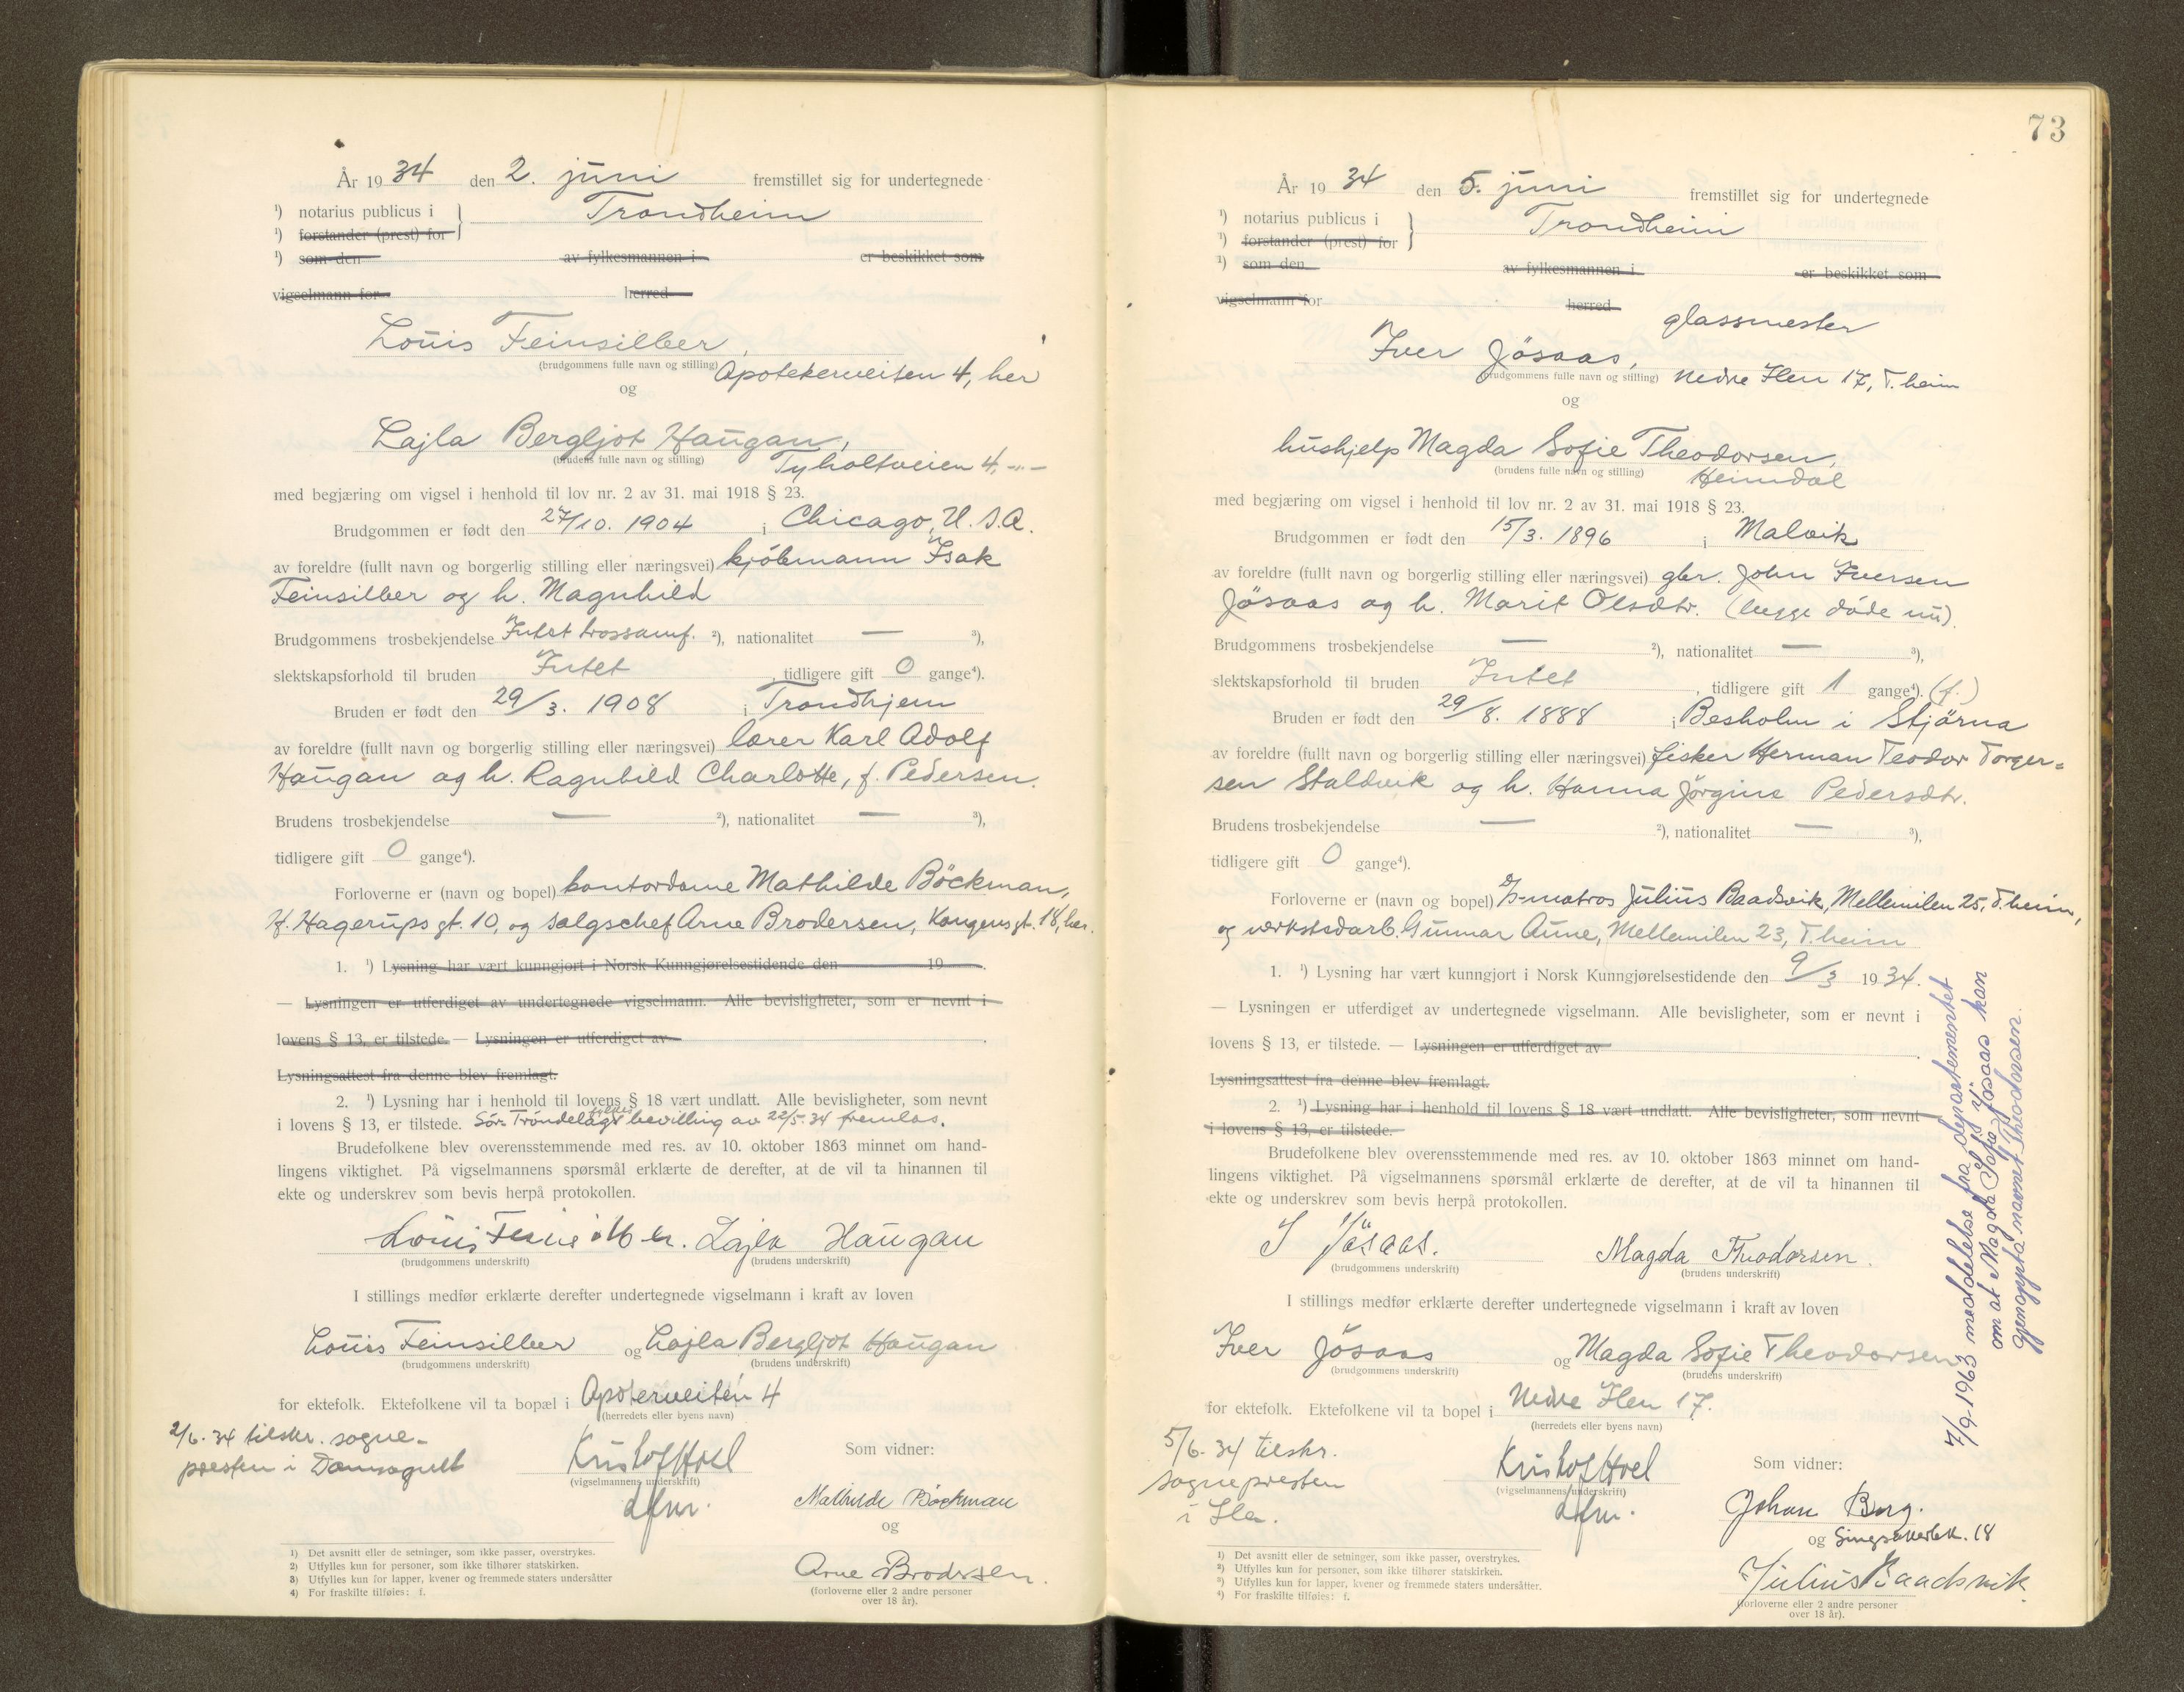 År 19 34 den 2. juni fremstillet sig for undertegnede
¹) notarius publicus i } Trondheim
¹) forstander (prest) for
¹) som den av fylkesmannen i er beskikket som
vigselmann for herred
Louis Feinsilber,
(brudgommens fulle navn og stilling) Apotekerveiten 4, her
og
Lajla Bergljot Haugan,
(brudens fulle navn og stilling) Tyholtveien 4, -"-
med begjæring om vigsel i henhold til lov nr. 2 av 31. mai 1918 § 23.
Brudgommen er født den 27/10. 1904 i Chicago, U.S.A.
av foreldre (fullt navn og borgerlig stilling eller næringsvei) kjöbmann Isak
Feinsilber og h. Magnhild
Brudgommens trosbekjendelse Intet trossamf. ²), nationalitet — ³),
slektskapsforhold til bruden Intet , tidligere gift 0 gange⁴).
Bruden er født den 29/3. 1908 i Trondhjem
av foreldre (fullt navn og borgerlig stilling eller næringsvei) lærer Karl Adolf
Haugan og h. Ragnhild Charlotte, f. Pedersen.
Brudens trosbekjendelse — ²), nationalitet — ³),
tidligere gift 0 gange⁴).
Forloverne er (navn og bopel) kontordame Mathilde Böckman,
H. Hagerups gt. 10, og salgschef Arne Brodersen, Kongens gt. 18, her.
1. ¹) Lysning har vært kunngjort i Norsk Kunngjørelsestidende den 19 .
— Lysningen er utferdiget av undertegnede vigselmann. Alle bevisligheter, som er nevnt i
lovens § 13, er tilstede. — Lysningen er utferdiget av .
Lysningsattest fra denne blev fremlagt.
2. ¹) Lysning har i henhold til lovens § 18 vært undlatt. Alle bevisligheter, som nevnt
i lovens § 13, er tilstede. Sör-Tröndelags fylkes bevilling av 22/5-34 fremlas.
Brudefolkene blev overensstemmende med res. av 10. oktober 1863 minnet om hand-
lingens viktighet. På vigselmannens spørsmål erklærte de derefter, at de vil ta hinannen til
ekte og underskrev som bevis herpå protokollen.
Louis Feinsilber. Lajla Haugan
(brudgommens underskrift) (brudens underskrift)
I stillings medfør erklærte derefter undertegnede vigselmann i kraft av loven
Louis Feinsilber og Lajla Bergljot Haugan
(brudgommens underskrift) (brudens underskrift)
for ektefolk. Ektefolkene vil ta bopæl i Apoterveiten 4
(herredets eller byens navn)
2/6. 34 tilskr. sogne-
presten i Domsognet
Kristof Hoel
(vigselmannens underskrift)
dfm.
Som vidner:
Mathilde Böckman
og
Arne Brodersen.
(forloverne eller 2 andre personer
over 18 år).
1) Det avsnitt eller de setninger, som ikke passer, overstrykes.
2) Utfylles kun for personer, som ikke tilhører statskirken.
3) Utfylles kun for lapper, kvener og fremmede staters undersåtter
4) For fraskilte tilføies: f.
73
År 19 34 den 5. juni fremstillet sig for undertegnede
¹) notarius publicus i } Trondheim
¹) forstander (prest) for
¹) som den av fylkesmannen i er beskikket som
vigselmann for herred
glassmester
Iver Jösaas,
(brudgommens fulle navn og stilling) Nedre Ilen 17, T.heim
og
hushjelp Magda Sofie Theodorsen,
(brudens fulle navn og stilling) Heimdal
med begjæring om vigsel i henhold til lov nr. 2 av 31. mai 1918 § 23.
Brudgommen er født den 15/3. 1896 i Malvik
av foreldre (fullt navn og borgerlig stilling eller næringsvei) gbr. John Iversen
Jösaas og h. Marit Olsdtr. (begge döde nu).
Brudgommens trosbekjendelse — ²), nationalitet — ³),
slektskapsforhold til bruden Intet , tidligere gift 1 gange⁴). (f.)
Bruden er født den 29/8. 1888 i Besholm i Stjörna
av foreldre (fullt navn og borgerlig stilling eller næringsvei) fisker Herman Teodor Torger-
sen Staldvik og h. Hanna Jörgine Pedersdtr.
Brudens trosbekjendelse — ²), nationalitet — ³),
tidligere gift 0 gange⁴).
Forloverne er (navn og bopel) Julius Baadsvik, Mellemilen 25, T.heim,
og verkstedarb. Gunnar Aune, Mellemilen 23, T.heim
1. ¹) Lysning har vært kunngjort i Norsk Kunngjørelsestidende den 9/3 19 34.
— Lysningen er utferdiget av undertegnede vigselmann. Alle bevisligheter, som er nevnt i
lovens § 13, er tilstede. — Lysningen er utferdiget av .
Lysningsattest fra denne blev fremlagt.
2. ¹) Lysning har i henhold til lovens § 18 vært undlatt. Alle bevisligheter, som nevnt
i lovens § 13, er tilstede.
Brudefolkene blev overensstemmende med res. av 10. oktober 1863 minnet om hand-
lingens viktighet. På vigselmannens spørsmål erklærte de derefter, at de vil ta hinannen til
ekte og underskrev som bevis herpå protokollen.
I Jösaas. Magda Theodorsen.
(brudgommens underskrift) (brudens underskrift)
I stillings medfør erklærte derefter undertegnede vigselmann i kraft av loven
Iver Jösaas og Magda Sofie Theodorsen
(brudgommens underskrift) (brudens underskrift)
for ektefolk. Ektefolkene vil ta bopel i Nedre Ilen 17.
(herredets eller byens navn)
5/6. 34 tilskr.
sognepresten
i Ila.
Kristof Hoel
(vigselmannens underskrift)
dfm.
Som vidner:
Johan Berg.
og Singsakerbk. 18
Julius Baadsvik.
(forloverne eller 2 andre personer
over 18 år).
1) Det avsnitt eller de setninger, som ikke passer, overstrykes.
2) Utfylles kun for personer, som ikke tilhører statskirken.
3) Utfylles kun for lapper, kvener og fremmede staters undersåtter.
4) For fraskilte tilføies: f.
7/9-1963 meddelelse fra departementet
om at Magda Sofie Jösaas kan
gjenoppta navnet Theodorsen.